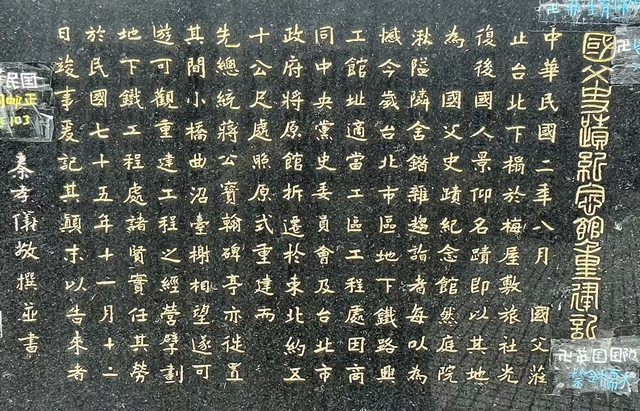 國父史蹟紀念館重建記
中華民國二年八月　國父莅
止台北下榻於梅屋敷旅社光
復後國人景仰名蹟即以其地
為　國父史蹟紀念館然庭院
湫隘隣舍錯雜趨詣者每以為
憾今歲台北市區地下鐵路興
工館址適當工區工程處因商
同中央黨史委員會及台北市
政府將原館拆遷於東北約五
十公尺處照原式重建而
先總統蔣公寶翰碑亭亦徙置
其間小橋曲沼臺榭相望遂可
遊可觀重建工程之經營擘劃
地下鐵工程處諸賢實任其勞
於民國七十五年十一月十二
日竣事爰記其顛末以告來者
秦孝儀敬撰並書
103